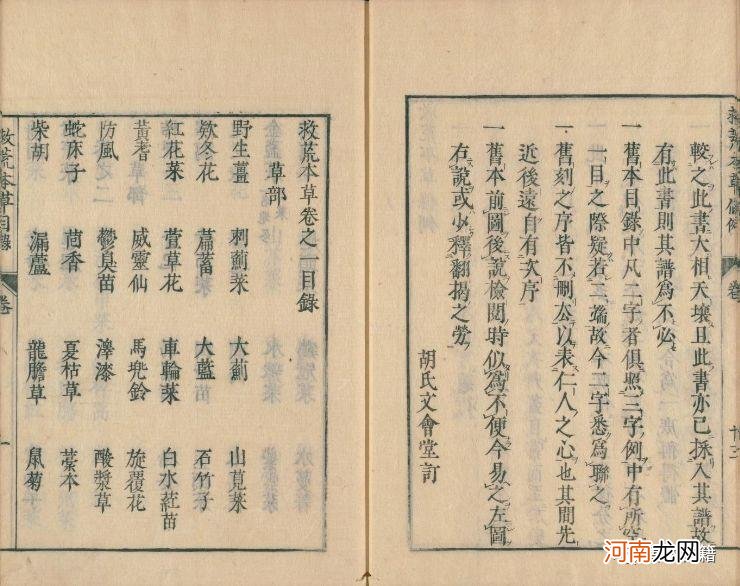 較之此書大相天壤且此書亦已採入其譜故
有此書則其譜為不必
一舊本目錄中凡二字者俱照三字例中有所空
一目之際疑若三端故今二字悉為聯之
一舊刻之序皆不刪去以表仁人之心也其間先
近後遠自有次序
一舊本前圖後說檢閱時似為不便今易之左圖
右說或少釋翻揭之勞
胡氏文會堂訂
救荒本草卷之一目錄
草部
野生薑 刺薊菜 大薊 山莧菜
欵冬花 萹蓄菜 大藍苗 石竹子
紅花菜 萱草花 車輪菜 白水葒苗
黃耆 威靈仙 馬兜鈴 旋覆花
防風 鬱臭苗 澤漆 酸漿草
蛇床子 茴香 夏枯草 藁本
柴胡 漏蘆 龍膽草 鼠菊
救荒本草目錄 卷 一
河南龙网